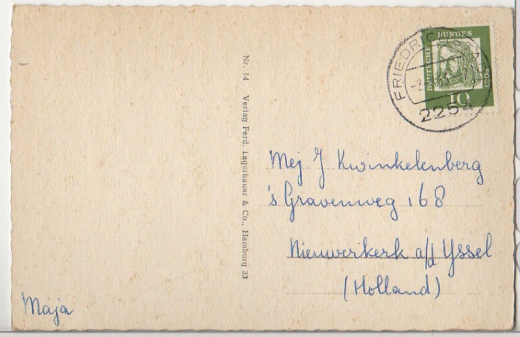 DEUTSCHE BUNDESPOST
10
FRIEDRICH
2254
Nr. 14 Verlag Ferd. Lagerbauer & Co., Hamburg 33
Mej J Kwinkelenberg
's Gravenweg 168
Nieuwerkerk a/d Yssel
(Holland)
Maja